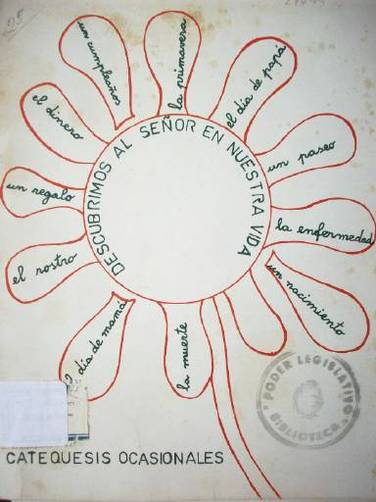 DESCUBRIMOS AL SEÑOR EN NUESTRA VIDA
el rostro
un regalo
el dinero
un cumpleaños
la primavera
el día de papá
un paseo
la enfermedad
un nacimiento
la muerte
día de mamá
PODER LEGISLATIVO
BIBLIOTECA
CATEQUESIS OCASIONALES